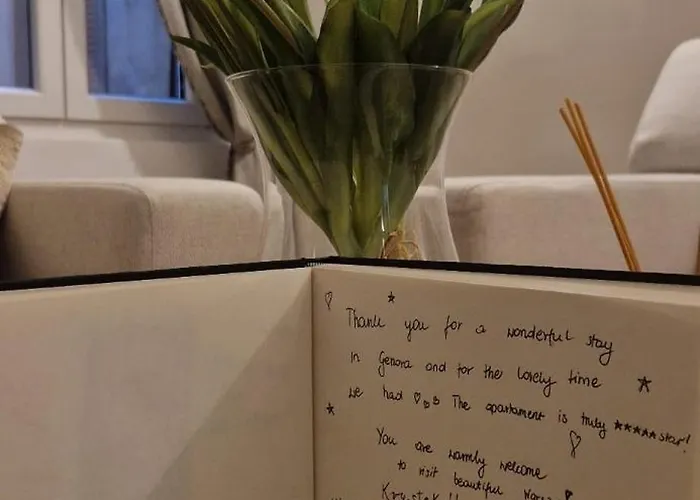 Thank you for a wonderful stay
in Genova and for the lovely time
we had ♡♡♡ The apartament is truly ★★★★★star!
You are warmly welcome
to visit beautiful